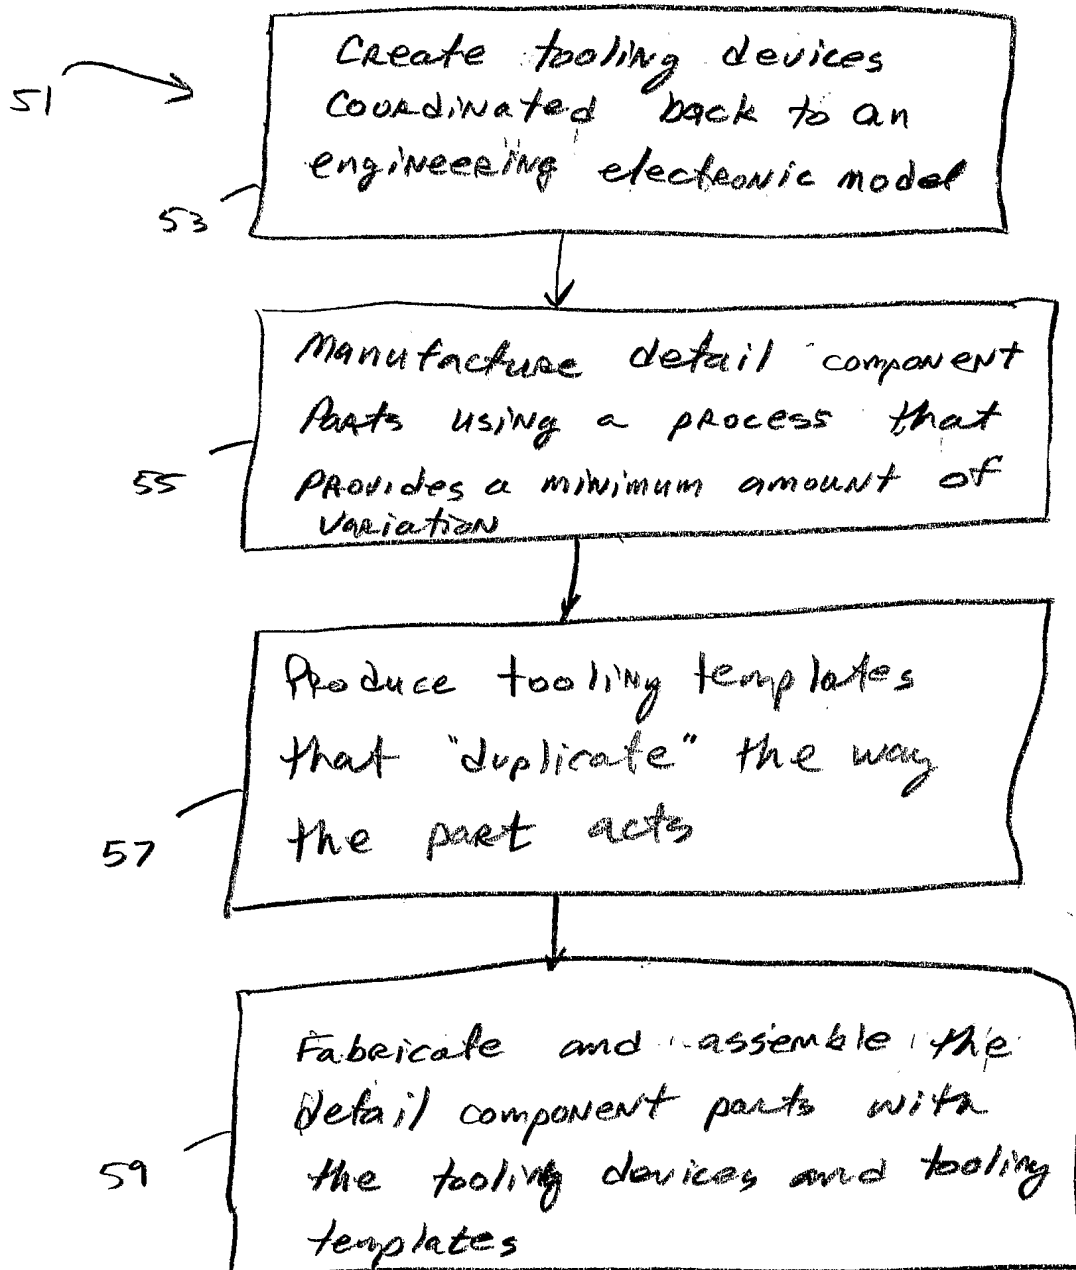 51
Create tooling devices
coordinated back to an
engineering electronic model
53
Manufacture detail component
Parts using a process that
provides a minimum amount of
variation
55
Produce tooling templates
that "duplicate" the way
the part acts
57
Fabricate and assemble the
detail component parts with
the tooling devices and tooling
templates
59